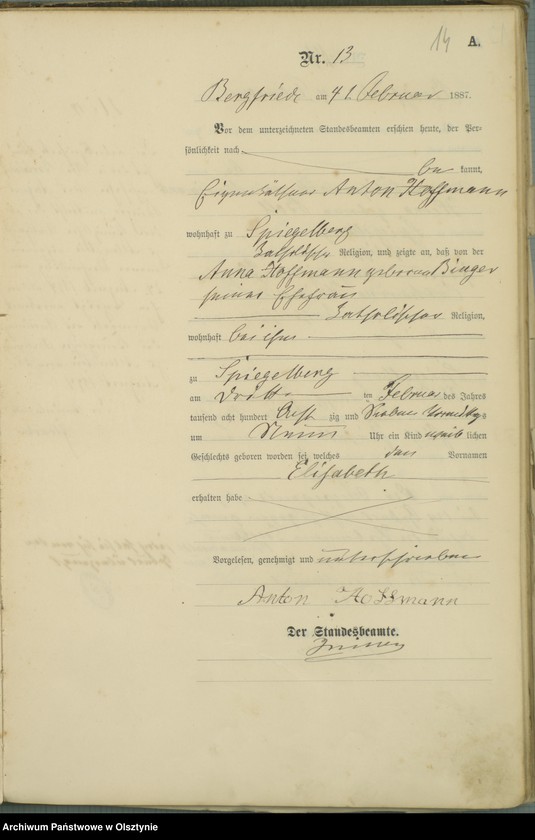 14 A.
Nr. 13
Bergfriede am 4t. Februar 1887.
Vor dem unterzeichneten Standesbeamten erschien heute, der Per=
sönlichkeit nach
be kannt,
Eigenkäthner Anton Hoffmann
wohnhaft zu Spiegelberg
katholischer Religion, und zeigte an, daß von der
Anna Hoffmann geborene Binger
seiner Ehefrau
katholischer Religion,
wohnhaft bei ihm
zu Spiegelberg
am dritten ten Februar des Jahres
tausend acht hundert acht zig und sieben Vormittags
um Neun Uhr ein Kind weib lichen
Geschlechts geboren worden sei, welches den Vornamen
Elisabeth
erhalten habe
Vorgelesen, genehmigt und unterschrieben
Anton Hoffmann
Der Standesbeamte.
Archiwum Państwowe w Olsztynie